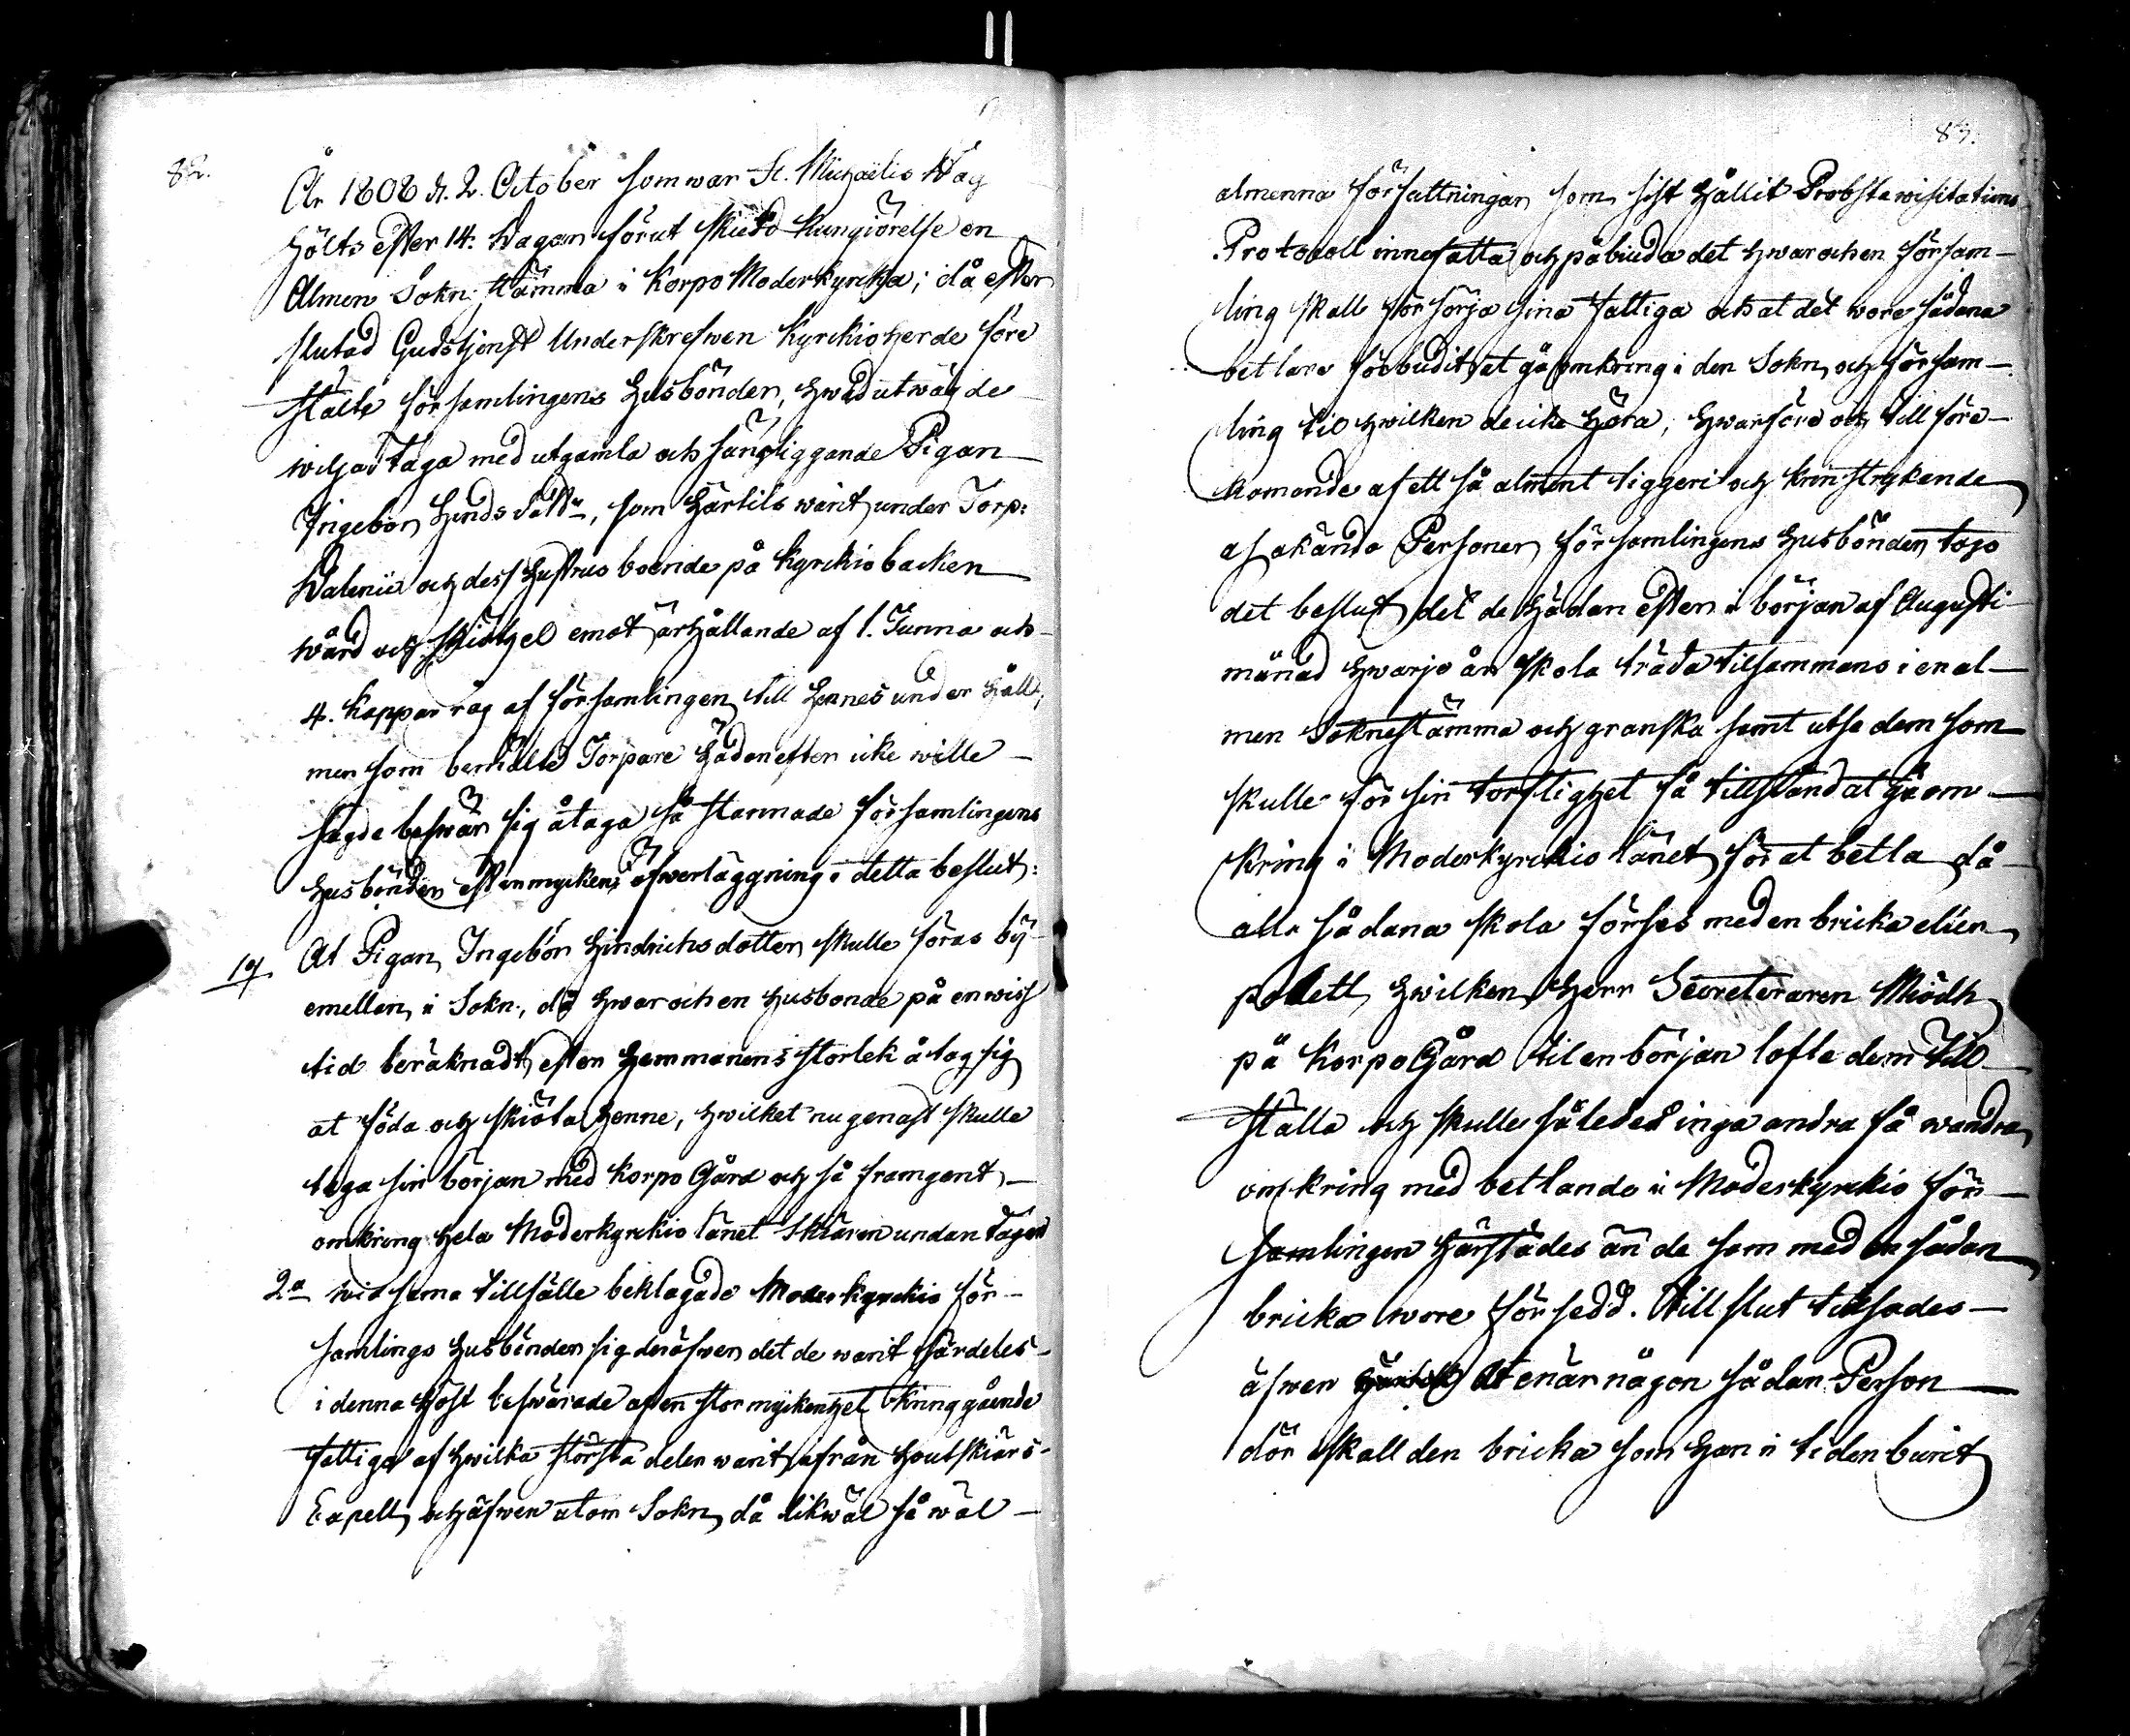 82.
År 1808 d. 2. October som war St. Michaëlis Dag
hölts efter 14. Dagar förut skiedd kungiörelse en
Almen Sokn: stämma i Korpo Moderkyrcka; då efter
slutad Gudstjenst Underskrefwen Kyrckioherde före
stälte församlingens Husbönder, hwad utwäg de
wilja taga med utgamla och sängliggande Pigan
Ingebor Hindsdottr, som härtils warit under Torp:
Walenii och dess Hustrus boende på Kyrckiobacken
wård och skiötzel emot ärhållande af 1. Tunna och
4. kappar råg af församlingen till hennes underhåll;
men som bemälte Torpare hädanefter icke wille
sagde beswär sig åtaga så stannade församlingens
Husbönder efter mycken öfwerläggning i detta beslut:
1o/ At Pigan Ingebor Hindrichsdotter skulle föras by
emellan i Sokn:, då hwar och en husbonde på en wiss
tid beräknadt efter Hemmanens storlek åtog sig
at föda och skiöta henne, hwilket nu genast skulle
taga sin början med Korpo Gård och så framgent
omkring hela Moderkyrckio länet Skiären undantagen
2o wid sama tillfälle beklagade Moderkyrckio för-
samlings Husbönder sig deröfwer det de warit särdeles
i denna höst beswärade af en stor myckenhet kringgående
fattiga af hwilka största delen warit ifrån Houtskiärs
Capell och äfwen utom Sokn, då likwäl så wäl
83.
almenna författningar som sist hållit Probstewisitations
Protocoll innefatta och påbiuda det hwar och en försam-
ling skall försörja sina fattiga och at det wore sådana
betlare förbudit at gå omkring i den Sokn och försam-
ling til hwilken de icke höra, hwarföre och till före-
komande af ett så almänt tiggeri och kringstrykende
af okända Personer församlingens husbönder togo
det beslut det de hädan efter i början af Augusti
månad hwarje år skola träda tilsammans i en al-
men Soknestämma och granska samt utse dem som
skulle för sin torftighet få tillstånd at gå om-
kring i Moderkyrckio länet för at betla då
alla sådana skola förses med en bricka eller
polett, hwilken Herr Secreteraren Miödh
på Korpo Gård til en början lofte dem till
ställa och skulle således inga andra få wandra
omkring med betlande i Moderkyrckio för-
samlingen härstädes än de som med en sådan
bricka wore försedd. Till slut tilsades
äfwen at enär någon sådan Person
dör skall den bricka som han i tiden burit